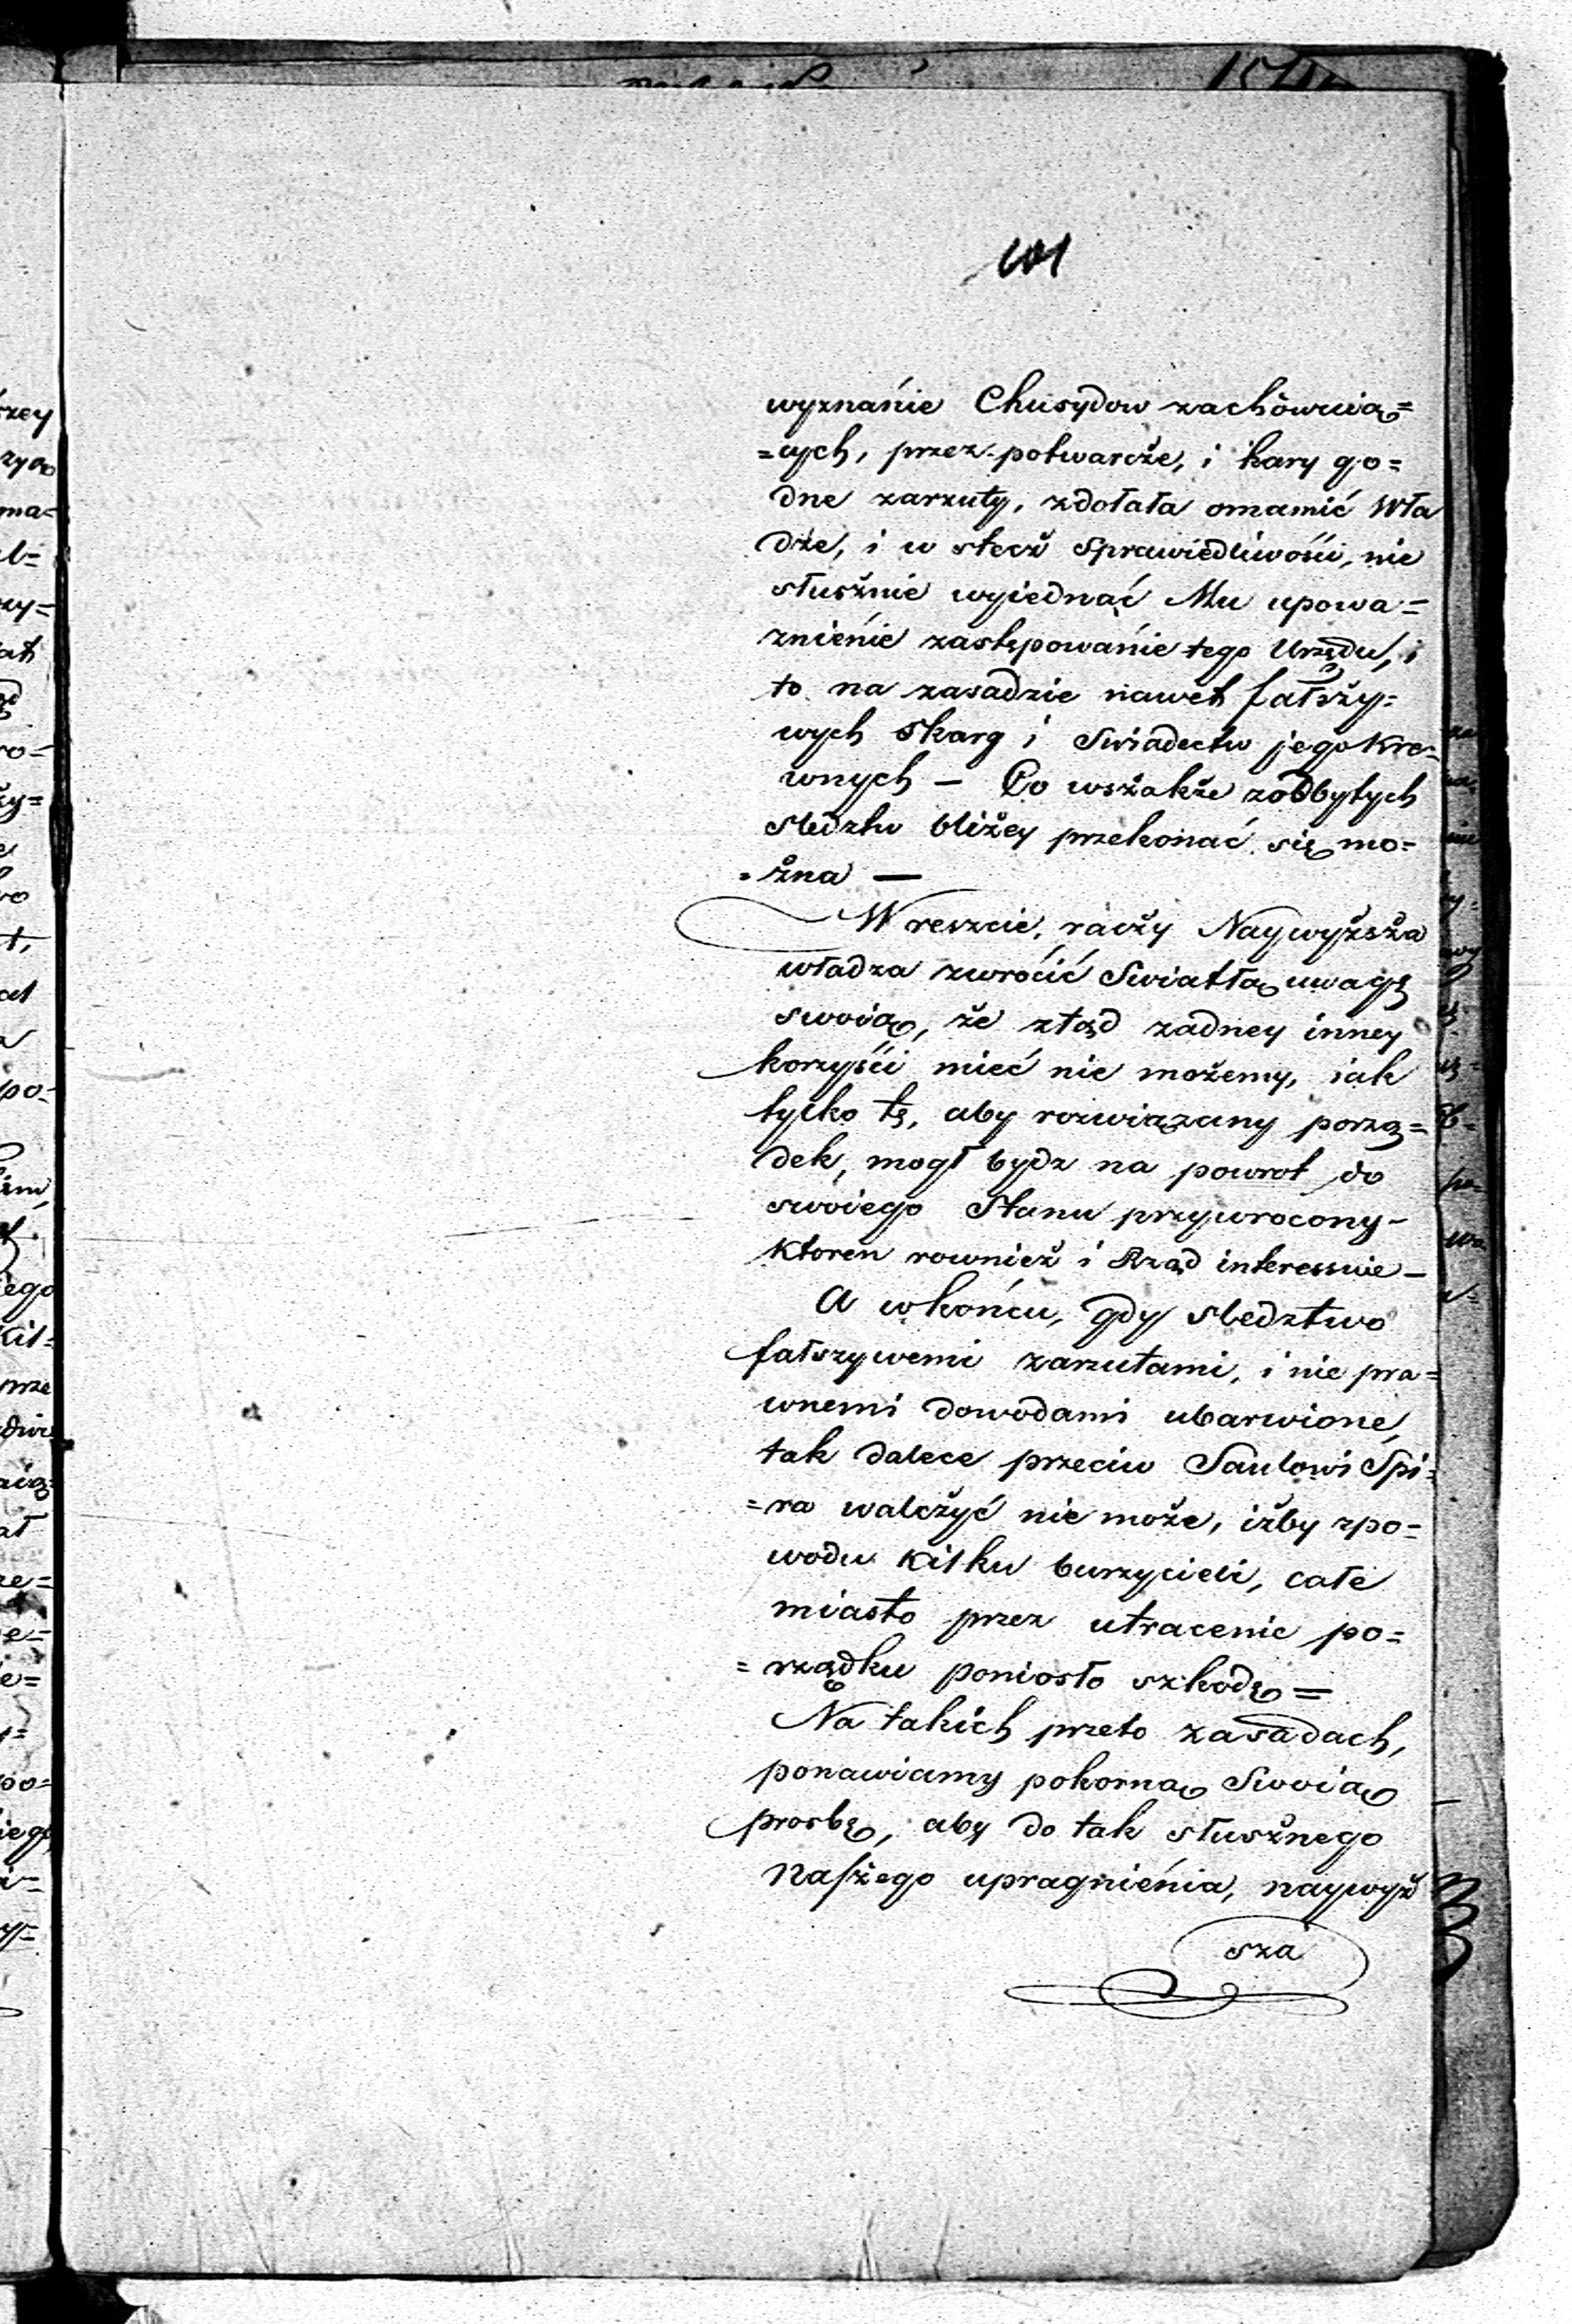 101
wyznanie Chusydow zachowuią=
=cych, przez potwarcże, i kary go=
dne zarzuty, zdołała omamić Wła
dże, i w stecż Sprawiedliwości, nie
słusżnie wyiednać Mu upowa=
znienie zastępowanie tego Urzędu, i
to na zasadzie nawet fałsży=
wych Skarg i Swiadectw jego Kre=
wnych — Co wszakże zodbytych
sledztw bliżey przekonać się mo=
=żna —
W reszcie, racży Naywyżsża
władza zwrócić Swiatłą uwagę
swoią, że ztąd zadney inney
korzyści mieć nie możemy, iak
tylko tę, aby rozwiązany porzą=
dek, mogł bydz na powrot do
swoiego Stanu przywrocony —
ktoren rownież i Rząd interessuie —
A wkońcu, gdy sledztwo
fałszywemi zarzutami, i nie pra=
wnemi dowodami ubarwione,
tak dalece przeciw Saulowi Spi=
=ra walcżyć nie może, iżby zpo=
wodu kilku burzycieli, całe
miasto przez utracenie po=
=rządku poniosło szkodę =
Na takich przeto zasadach,
ponawiamy pokorną Swoią
prosbę, aby do tak słusżnego
naszżego upragnienia, naywyż
sza